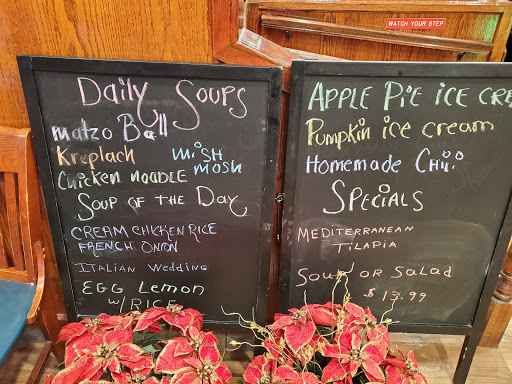 WATCH YOUR STEP
Daily Soups
matzo Ball
Kreplach
MISH
mosh
Chicken noodle
Soup of the Day
CREAM CHICKEN RICE
FRENCH ONION
ITALIAN WEDDING
EGG Lemon
w/ RICE
APPLE PIE ICE CRE
Pumpkin ice cream
Homemade Chili
SPECIALS
MEDITERRANEAN
TILAPIA
Soup OR SALAD
$ 13.99